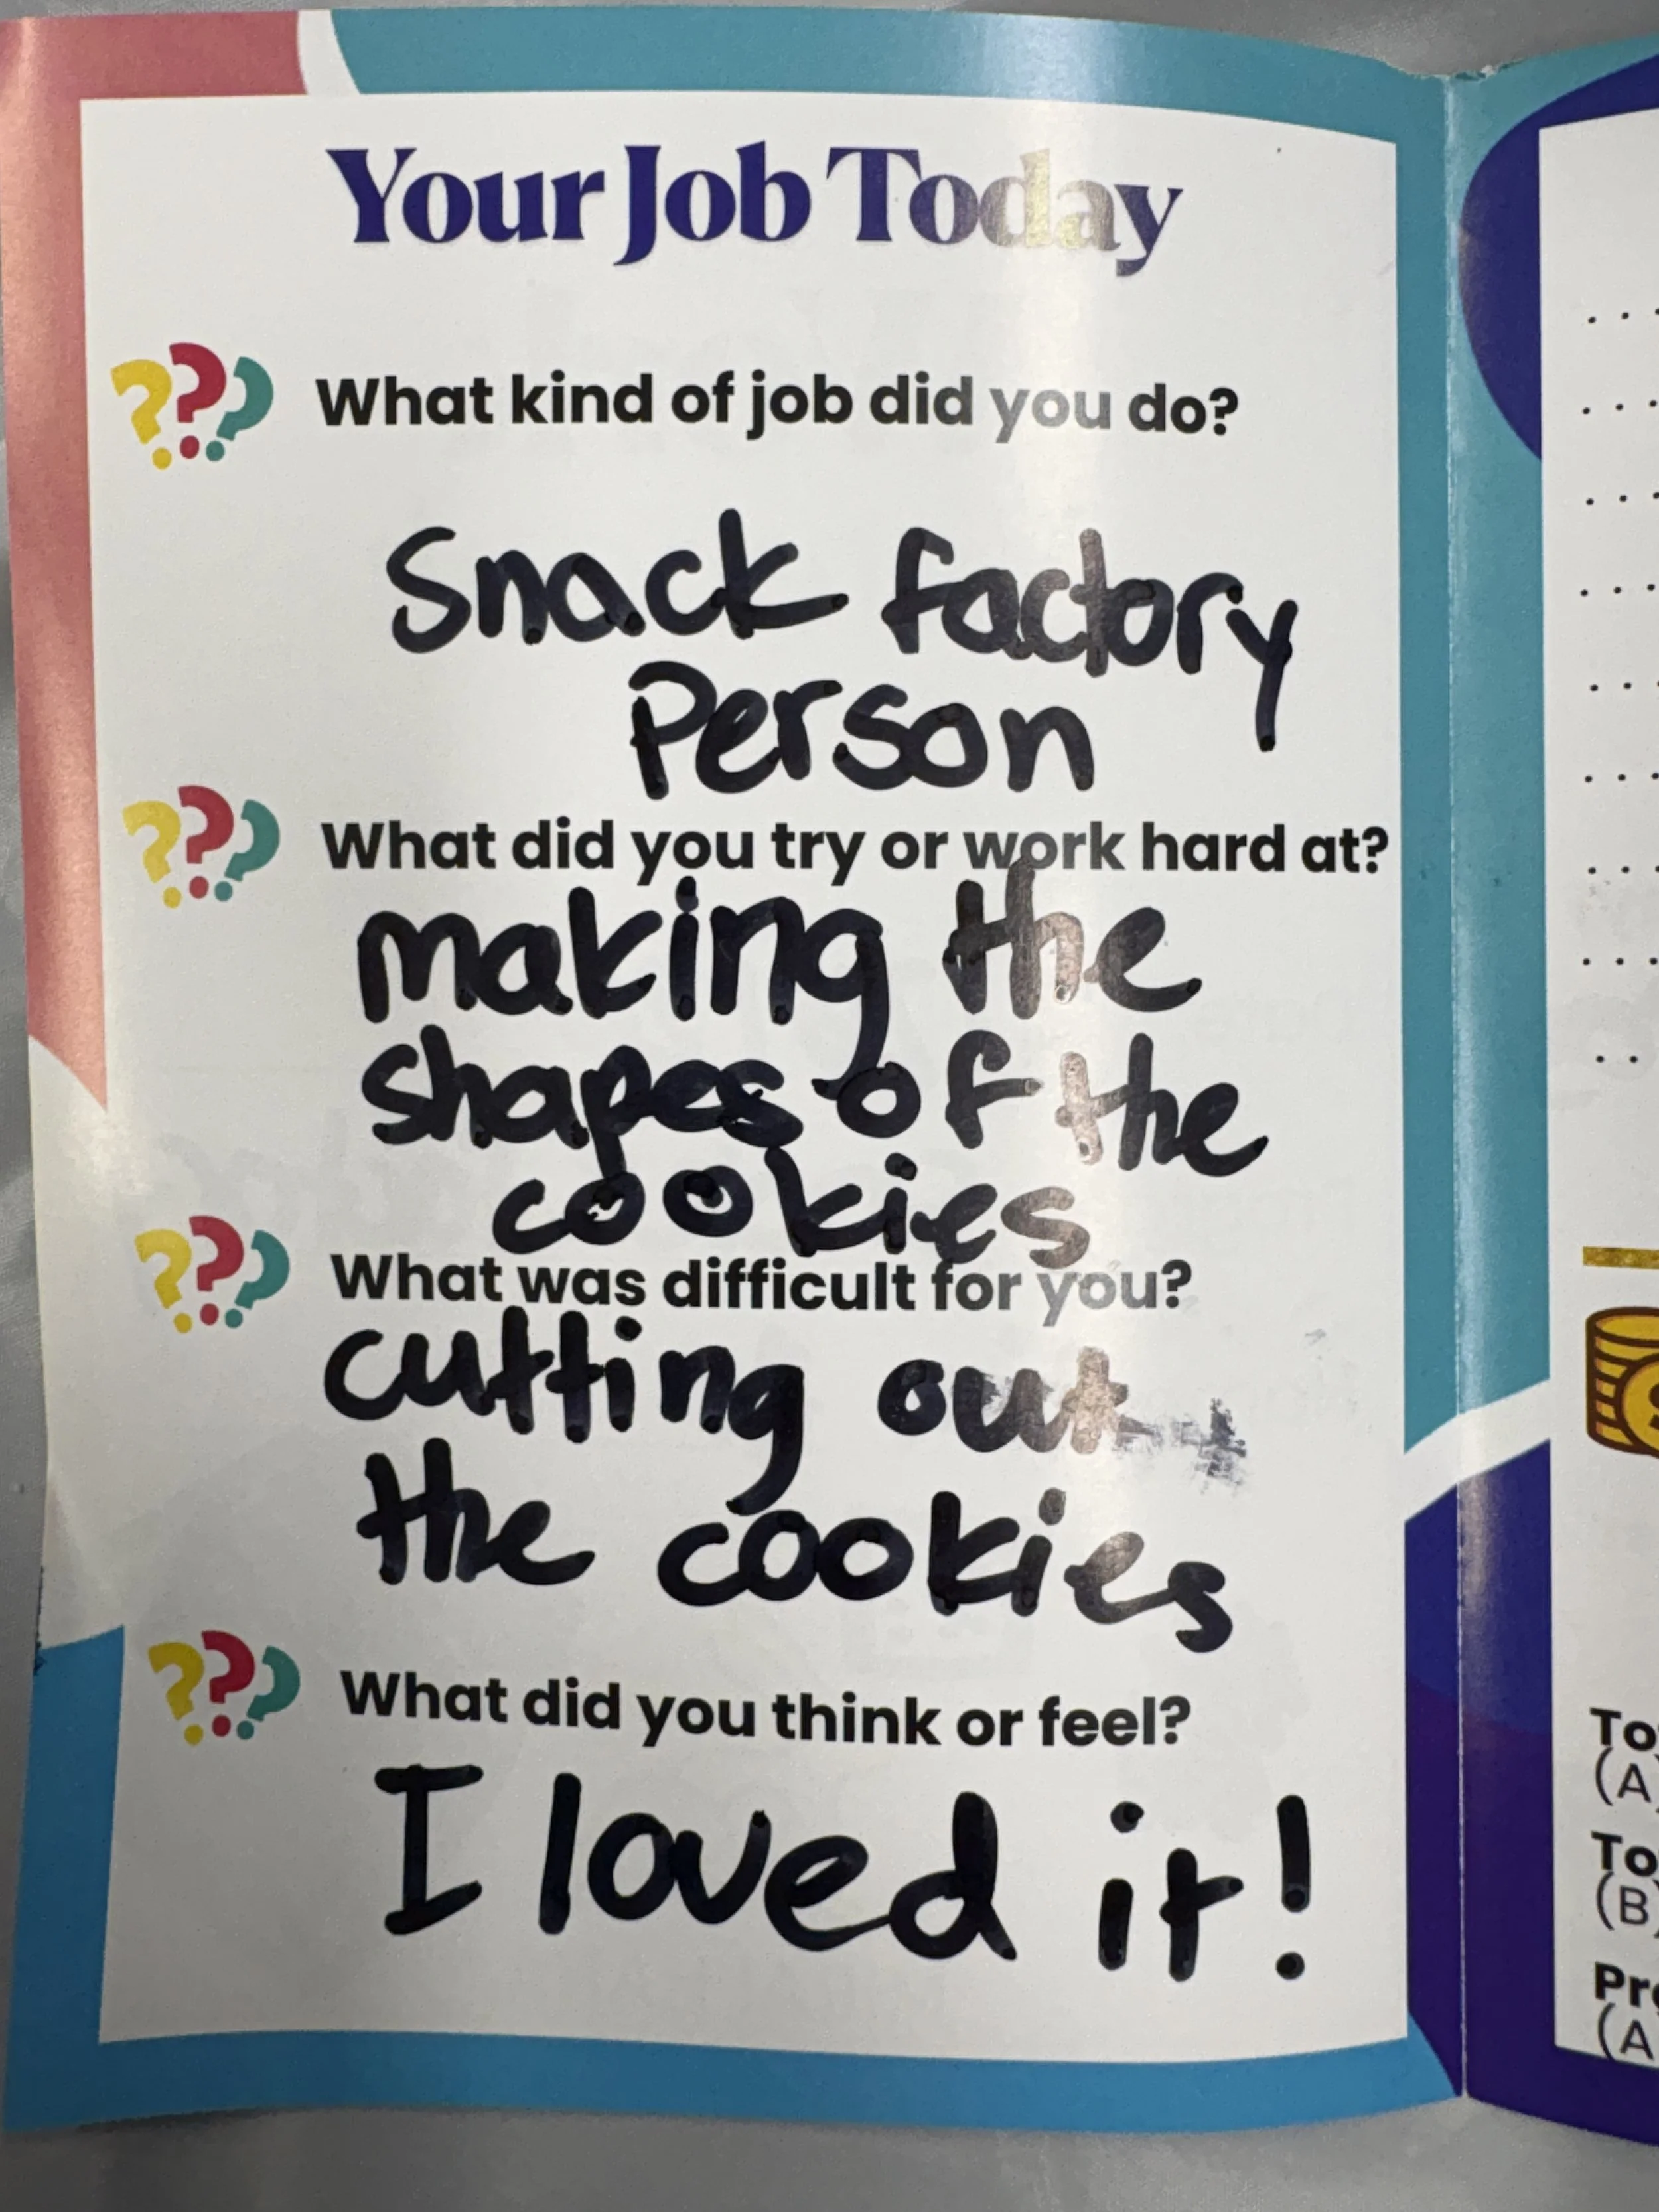 Your Job Today
What kind of job did you do?
Snack factory
Person
What did you try or work hard at?
making the
shapes of the
cookies
What was difficult for you?
cutting out
the cookies
What did you think or feel?
I loved it!
To
(A
To
(B)
Pr
(A